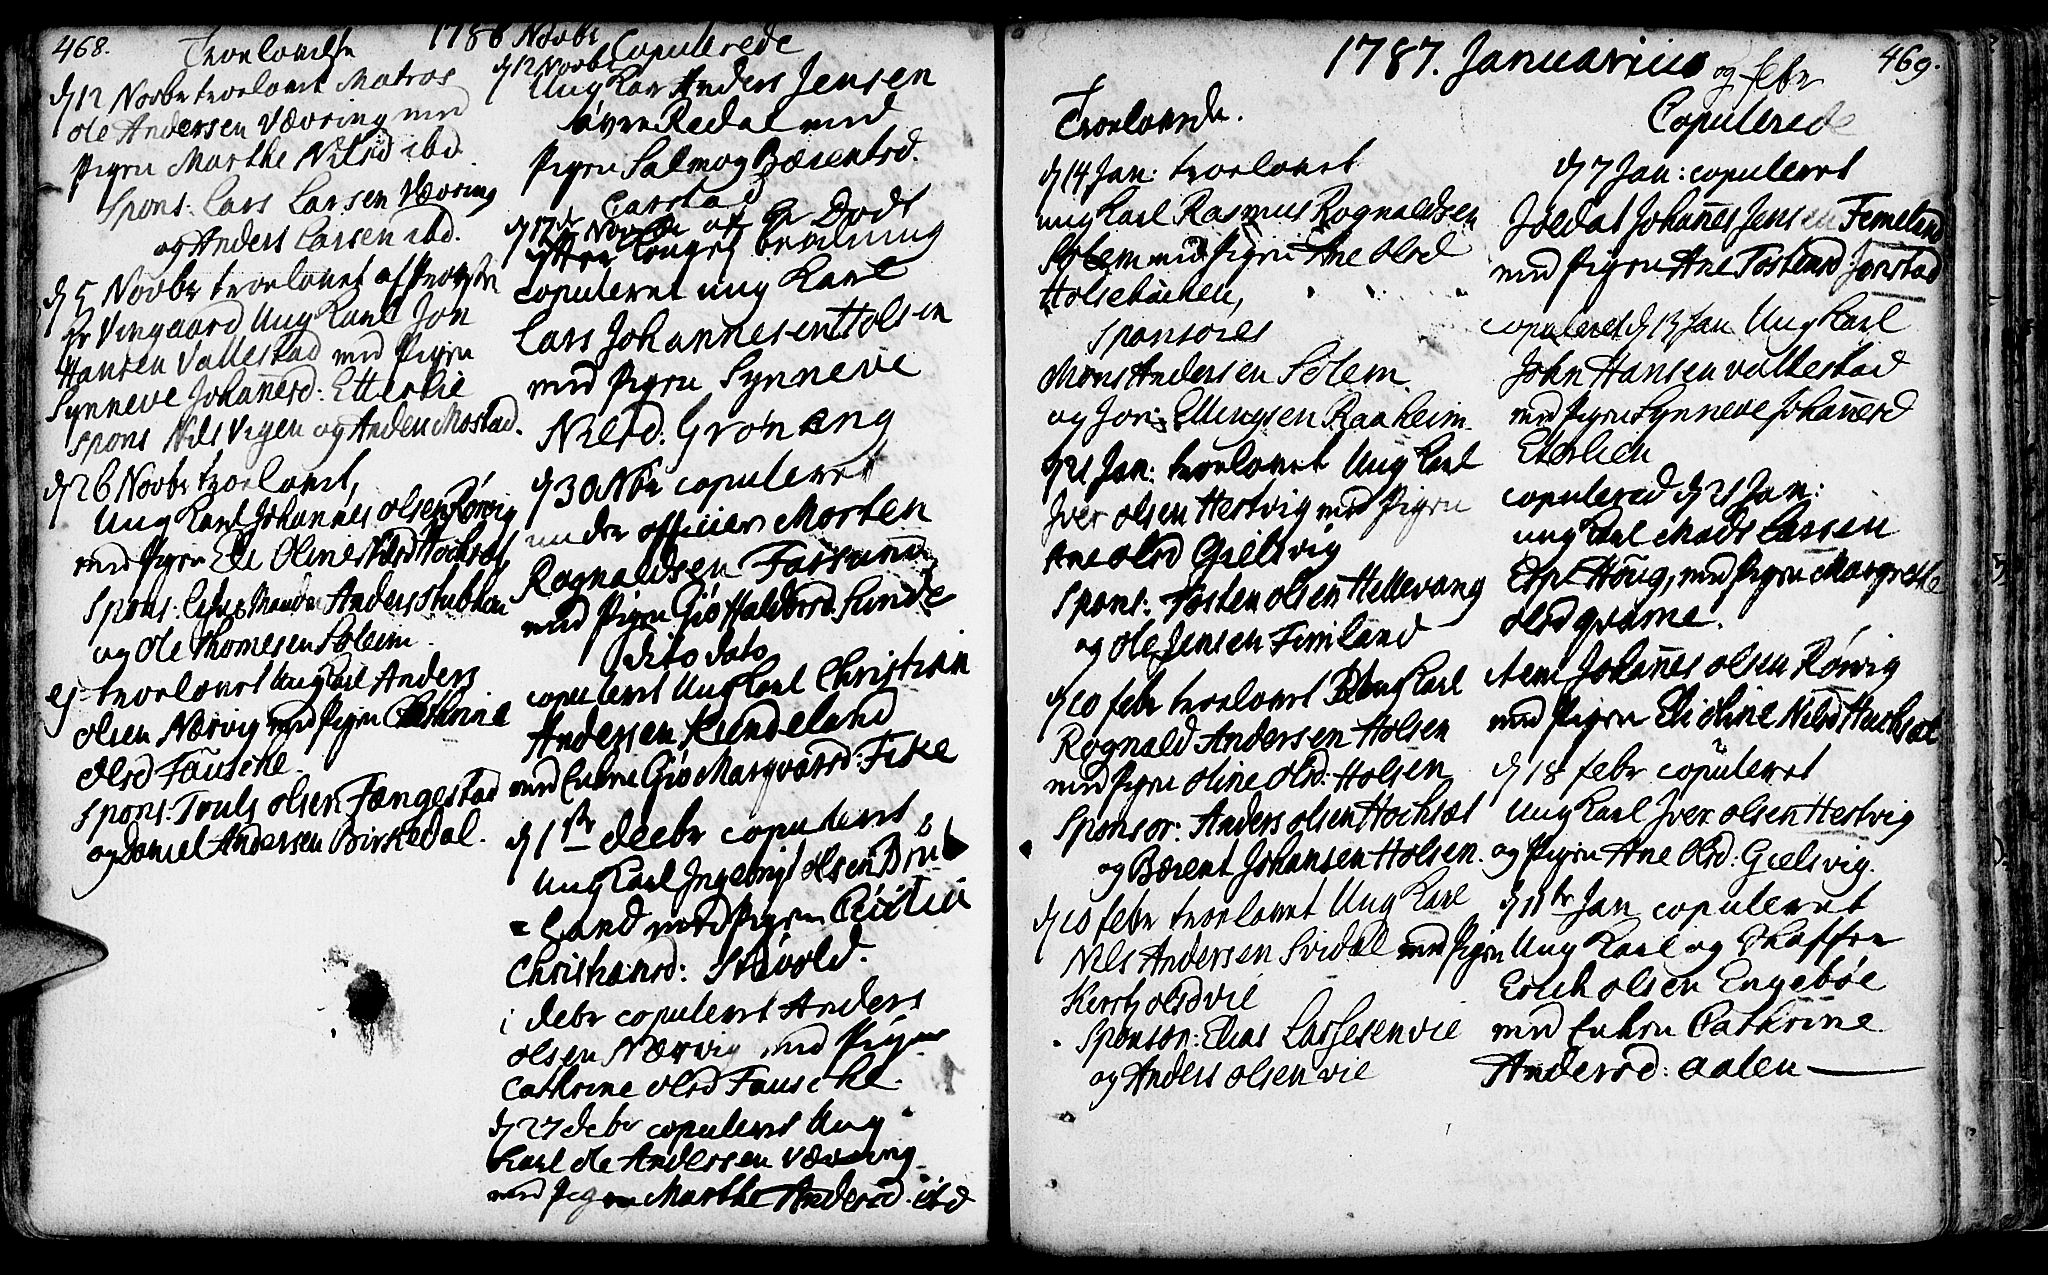 468.
1786 Novbr
Troelovelse
d 12 Novbr troelovet Matros
Ole Andersen Vævring med
Pigen Marthe Nilsd ibd.
Spons: Lars Larsen Vævring
og Anders Larsen ibd.
d 5 Novbr troelovet af Provsten
Hr Vingaard Ung Karl Jon
Hansen Vallestad med Pigen
Synneve Johanesd: Etterlie
Spons Nils Vigen og Anden Mostad.
d 26 Novbr troelovet
Ung Karl Johannes olsen Rørvig
med Pigen Eli Oline Nilsd Hochsæt
Spons: Anders Stubhou
og Ole Thomesen Solem.
ej troelovet Ung Karl Anders
olsen Nærvig med Pigen Cathrine
Olsd Fausche.
Spons: Truls olsen Fængestad
og Daniel Andersen Birkedal.
Copulerede
d 12 Novbr
Ung Karl Anders Jensen
øvre Redal med
Pigen Salmog Bærentsd.
Carstad
d 17de Novbr af Hr Dodt
efter Kongel bevilning
copuleret ung Karl
Lars Johannesen Holsen
med Pigen Synneve
Nilsd. Grønæng
d 30 Nbr copuleret
under officier Morten
Rognaldsen Fassund
med Pigen Giø Haldorsd. Sunde
dito dato
copuleret Ung Karl Christian
Andersen Kundeland
med Enken Giø Marqvardsd: Fiske
d 1ste decbr copuleret
Ung Karl Ingebrigt olsen Bru
= Land med Pigen
Christiansd: Støvold.
i debr copuleret Anders
olsen Nærvig med Pigen
Cathrine olsd Fausche.
d 27 debr copuleret Ung
Karl Ole Andersen Vævring
med Pigen Marthe Andersd. ibd
1787. Januarius og febr
469.
Troelovede.
d 14 Jan: troelovet
ung Karl Rasmus Rognaldsen
Solem med Pigen Ane Olsd
Holsebachen,
Sponsores
Mons Andersen Solem
og Jon Ellingsen Raaheim.
d 21 Jan: troelovet Ung Karl
Iver olsen Hestvig med Pigen
Ane Olsd Gielsvig
Spons: Tosten olsen Hellevang
og Ole Jensen Fimland
d 10 febr troelovet Ung Karl
Rognald Andersen Holsen
med Pigen Oline Olsd: Holsen
Sponsor: Anders olsen Hochsæt
og Bærent Johansen Holsen.
d 10 febr troelovet Ung Karl
Nils Andersen Svidal med Pigen
Kersty olsd vie
Sponsor: Elias Lassesen vie
og Anders olsen vie
Copulerede
d 7 Jan: copuleret
Soldat Johanes Jensen Femeland
med Pigen Ane Tostensd Jonstad
copuleret d 13 Jan Ung Karl
John Hansen vallestad
med Pigen Synneve Johanesd
Eterlien
copulered d 21 Jan:
ung Karl Mads Larsen
Espe Houg, med Pigen Margrethe
olsd qvame.
item Johanes olsen Rørvig
med Pigen Eli Oline Nilsd Hochsæt
d 18 febr copuleret
Ung Karl Iver olsen Hestvig
og Pigen Ane Olsd: Gielsvig.
d 11te Jan copuleret
Ung Karl og Skaffer
Erich olsen Engebøe
med Enken Cathrine
Andersd: aalen